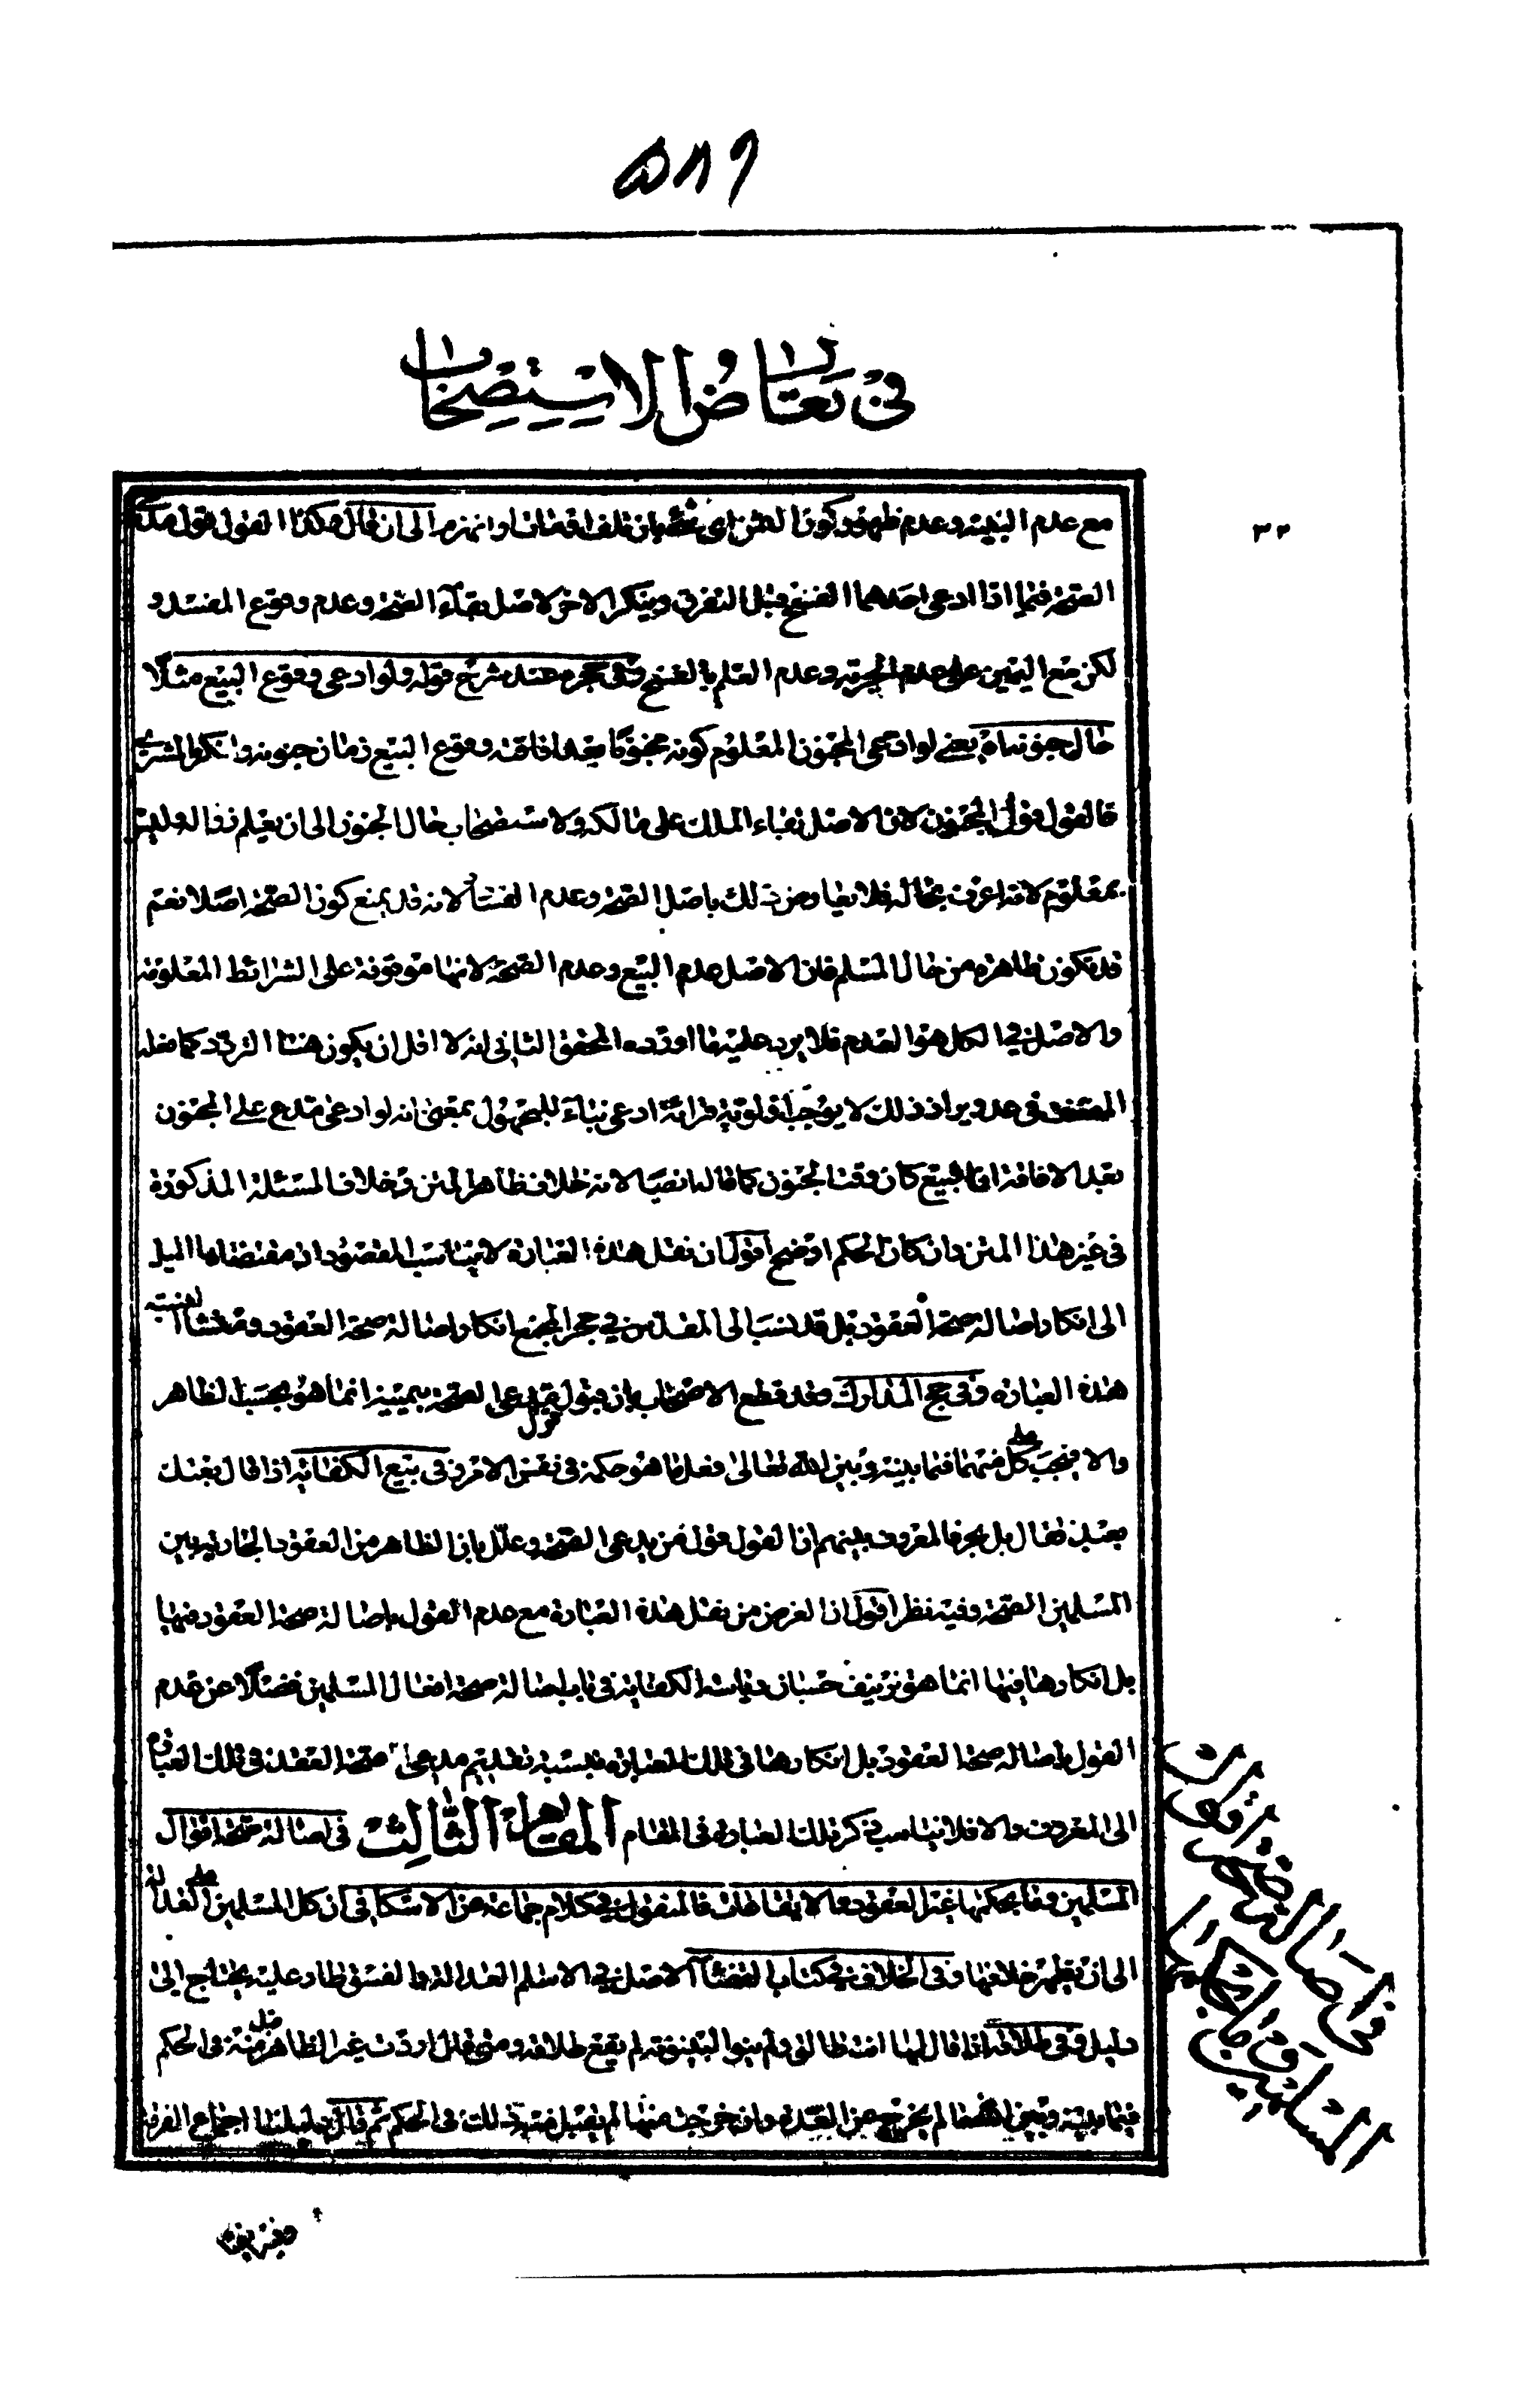 ٥٨٩
في تعارض الاستصحاب
مع عدم البينة وعدم ظهور كون الثمن اي بان تلف اقضانا وانهزم الى ان قال هكذا القول قول مدعي
الصحة فيما اذا ادعى احدهما الفسخ قبل التفرق وينكر الاخر لاصل بقاء الصحة وعدم وقوع المفسد و
لكن مع اليمين على عدم وعدم العلم بالفسخ وفي حجره عند شرح قوله ولو ادعى وقوع البيع مثلا
حال جنونه اه يعني لو ادعى المجنون المعلوم كونه مجنونا بعد افاقته وقوع البيع زمان جنونه وانكر المشتري
فالقول قول المجنون لان الاصل بقاء الملك على مالكه ولاستصحاب حال الجنون الى ان يعلم زواله وليس
بمعلوم لانه اعرف بحاله فلا يعارض ذلك باصل الصحة وعدم الفساد لانه قد يمنع كون الصحة اصلا نعم
قد تكون ظاهرة من حال المسلم فان الاصل عدم البيع وعدم الصحة لانها موقوفة على الشرائط المعلومة
والاصل في الكل هو العدم فلا يرد عليه ما اورده المحقق الثاني انه لا اقل ان يكون هنا التردد كما فعله
المصنف في عد وير اذ ذلك لا يوجب اولوية قرائة ادعى بناء للمجهول بمعنى انه لو ادعى مدع على المجنون
بعد الافاقة ان البيع كان وقت الجنون كما قاله ايضا لانه خلاف ظاهر المتن وخلاف المسئلة المذكورة
في غير هذا المتن وان كان الحكم اوضح اقول ان نقل هذه العبارة لا يناسب المقصود اذ مقتضاها الميل
الى انكار اصالة صحة العقود بل قد نسب الى المقدس في حجر المجمع انكار اصالة صحة العقود ومنشأ النسبة
هذه العبارة وفي حج المدارك وقد قطع الاصحاب بان قبول قول مدعي الصحة بيمينه انما هو بحسب الظاهر
والا فيجب على كل منهما فيما بينه وبين الله تعالى فعل ما هو حكمه في نفس الامر وفي بيع الكفاية اذا قال بعتك
بعبد فقال بل بحر فالمعروف بينهم ان القول قول من يدعي الصحة وعلل بان الظاهر من العقود الجارية بين
المسلمين الصحة وفيه نظر اقول ان الغرض من نقل هذه العبارة مع عدم القول باصالة صحة العقود فيها
بل انكارها فيها انما هو تزييف حسبان دياسه الكفاية في باب اصالة صحة افعال المسلمين فضلا عن عدم
القول باصالة صحة العقود بل انكارها في تلك العبارة بنسبة تقديم مدعي صحة العقد في تلك العبارة
الى المعروف والا فلا يناسب ذكر تلك العبارة في المقام المقام الثالث في اصالة صحة اقوال
المسلمين وما بحكمها غير العقود والايقاعات فالمنقول في كلام جماعة عن الاسكافي ان كل المسلمين على العدالة
الى ان يظهر خلافها وفي الخلاف في كتاب القضاء الاصل في الاسلام العدالة والفسق طار عليه يحتاج الى
دليل وفي طلاقه اذا قال لها انت طالق ولم ينو البينونة لم يقع طلاقه ومتى قال اردت غير الظاهر قبل منه في الحكم
فيما بينه وبين الله ما لم تخرج عن العدة وان خرجت منها لم يقبل منه ذلك في الحكم ثم قال دليلنا اجماع الفرقة
في اصالة صحة اقوال
المسلمين وما بحكمها